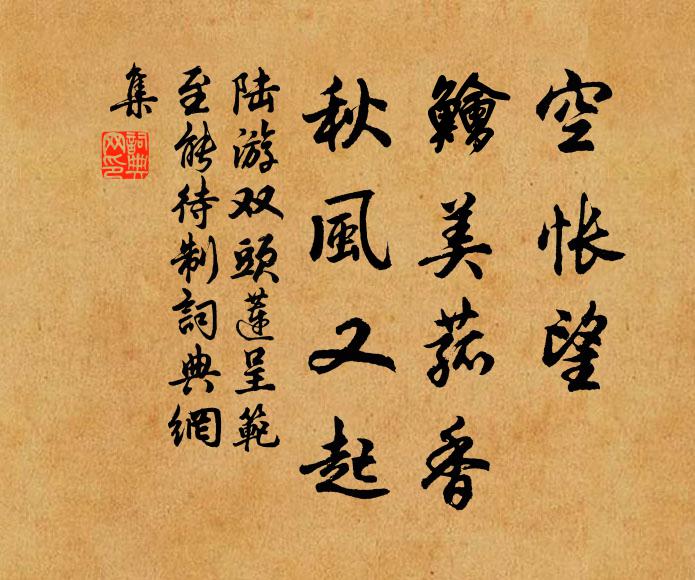 空帐望
鱠美菰香
秋風又起
陆游双頭蓮呈範
至能待制詞典網
集
詞典
网印